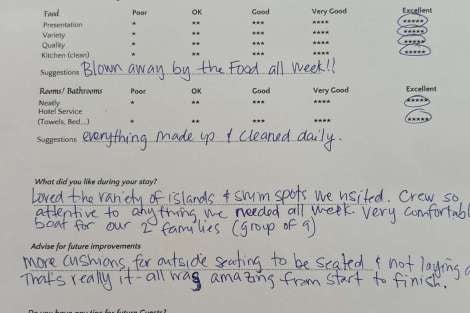 Food Poor OK Good Very Good Excellent
Presentation * ** *** **** *****
Variety * ** *** **** *****
Quality * ** *** **** *****
Kitchen (clean) * ** *** **** *****
Suggestions Blown away by the Food all week!!
Rooms/ Bathrooms Poor OK Good Very Good Excellent
Neatly * ** *** **** *****
Hotel Service
(Towels, Bed...) * ** *** **** *****
Suggestions everything made up & cleaned daily.
What did you like during your stay?
Loved the variety of islands & swim spots we visited. Crew so
attentive to anything we needed all week. Very comfortabl
boat for our 2 families (group of 9)
Advise for future improvements
More cushions for outside seating to be seated & not laying
Thats really it - all was amazing from start to finish.